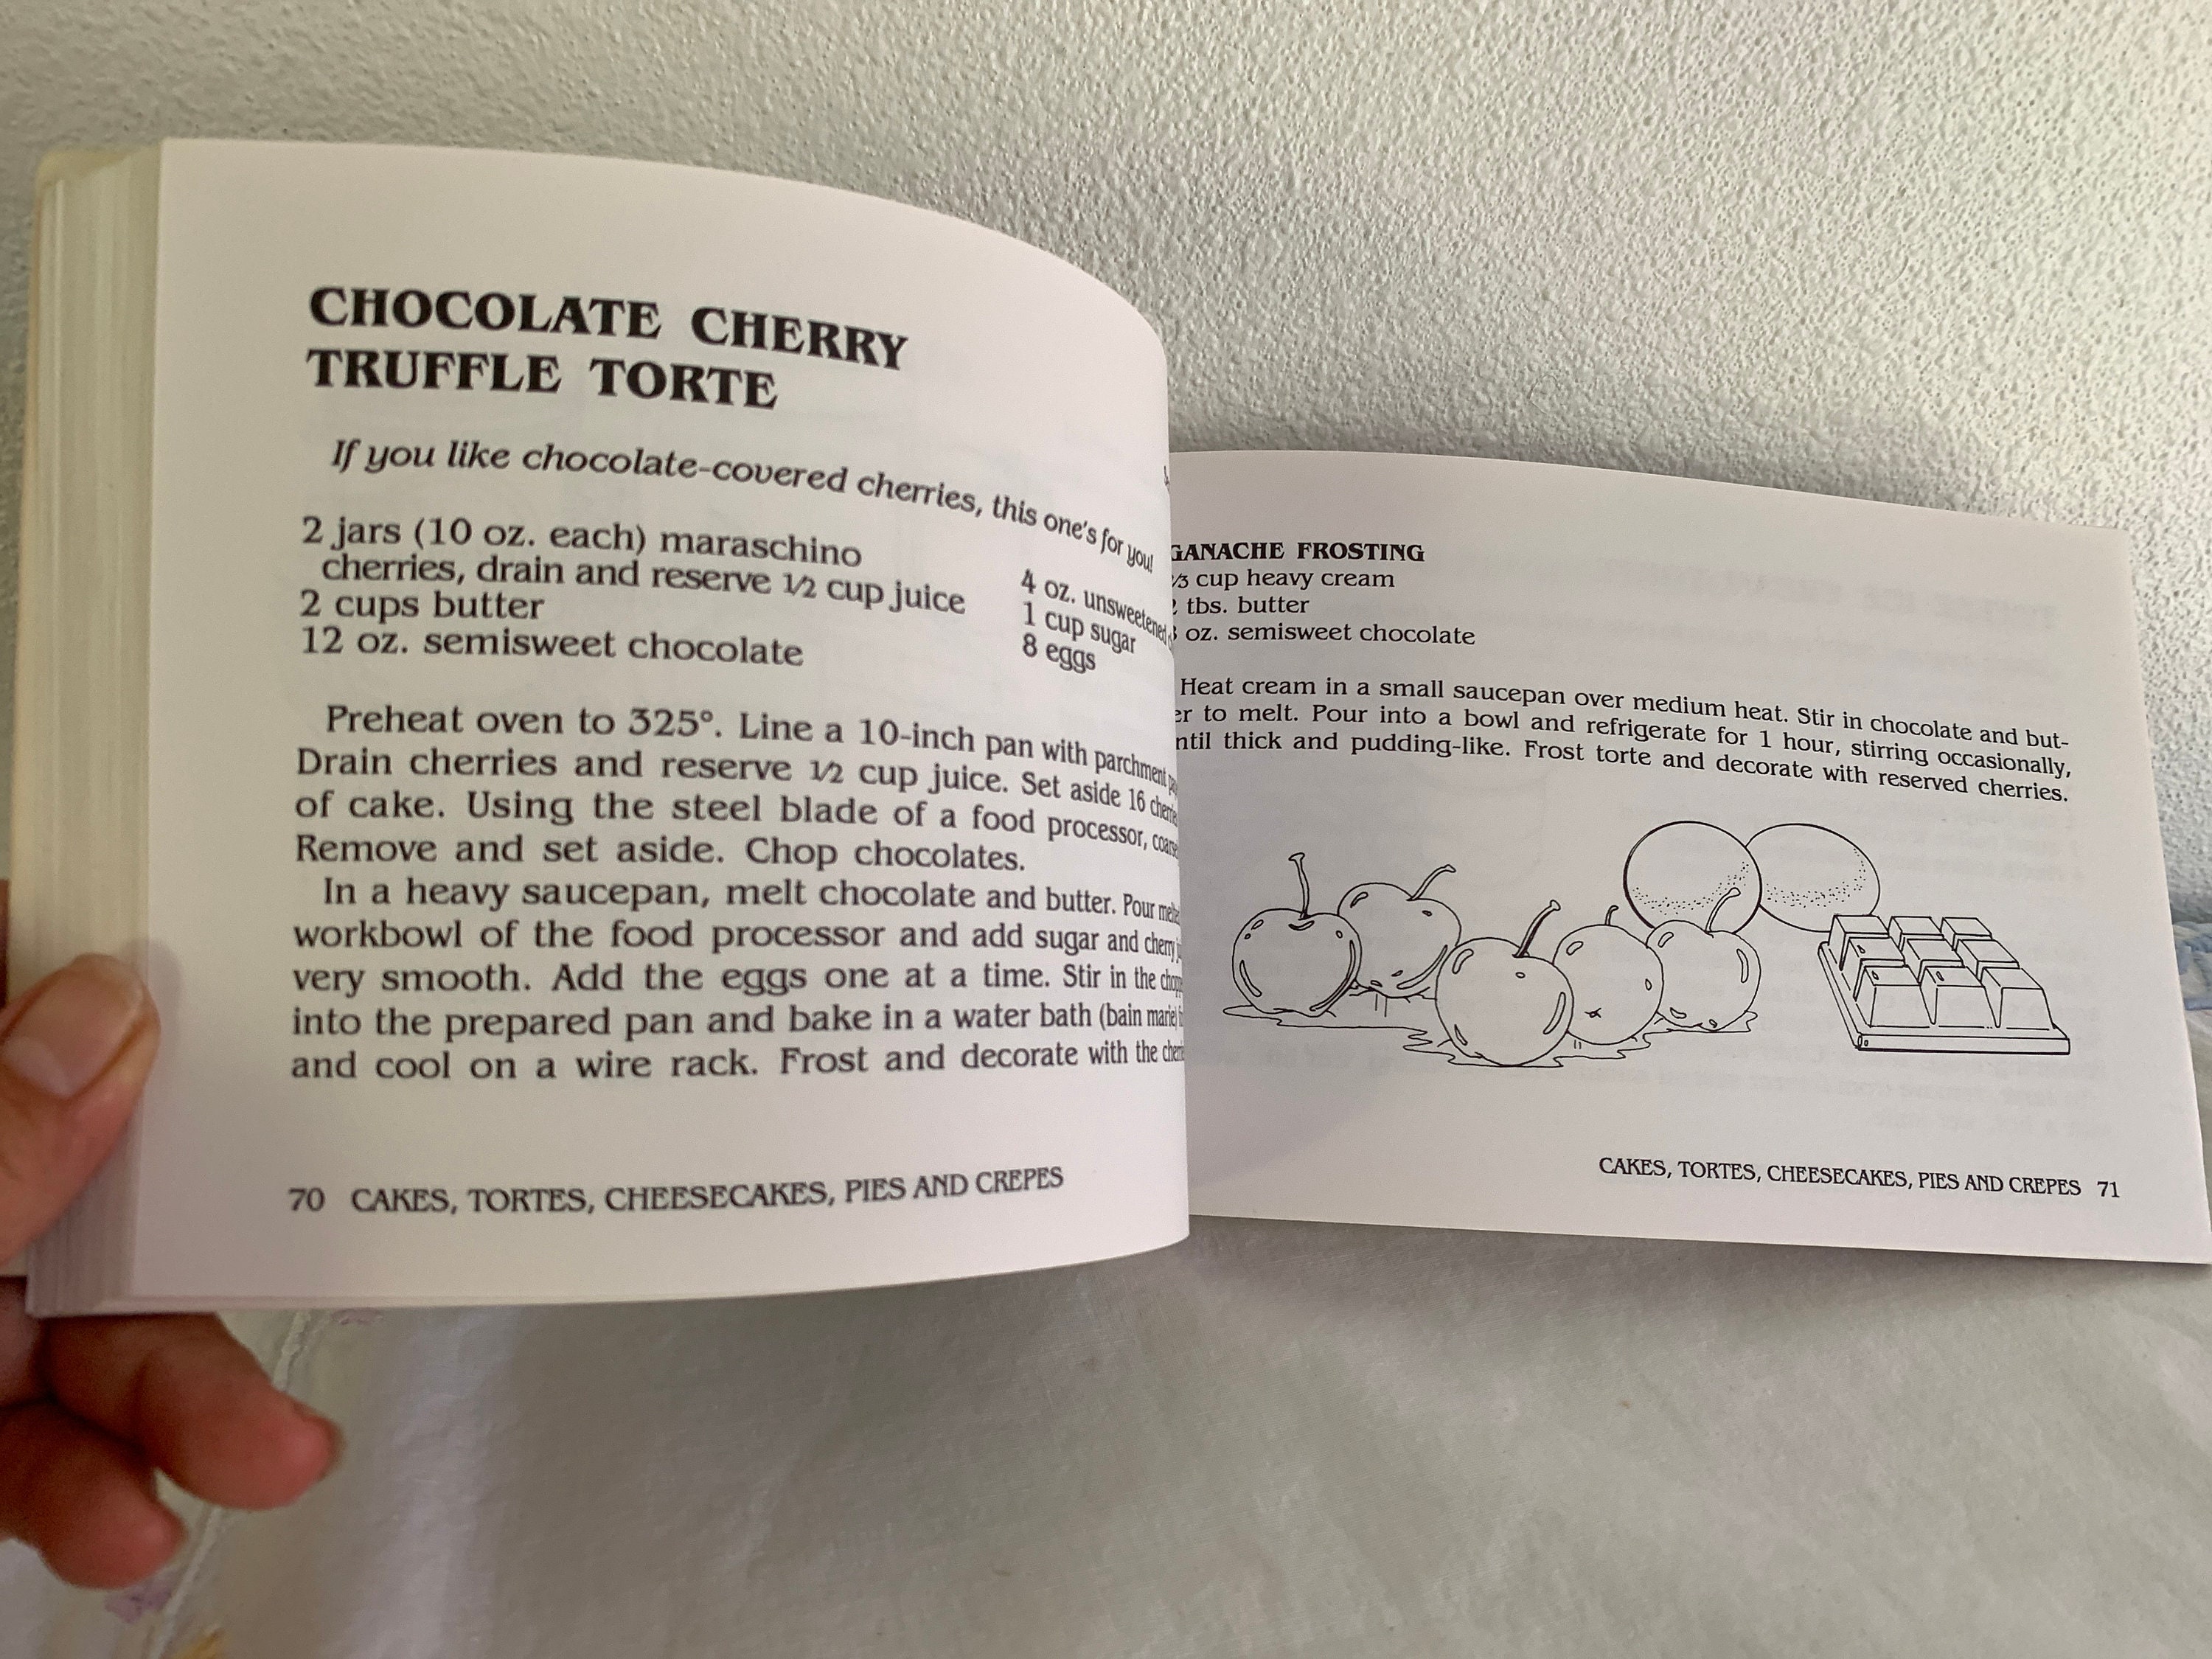 CHOCOLATE CHERRY
TRUFFLE TORTE
If you like chocolate-covered cherries, this one's for you!
2 jars (10 oz. each) maraschino
cherries, drain and reserve 1/2 cup juice
2 cups butter
12 oz. semisweet chocolate
4 oz. unsweetened
1 cup sugar
8 eggs
Preheat oven to 325°. Line a 10-inch pan with parchment
Drain cherries and reserve 1/2 cup juice. Set aside 16
of cake. Using the steel blade of a food processor,
Remove and set aside. Chop chocolates.
In a heavy saucepan, melt chocolate and butter. Pour
workbowl of the food processor and add sugar and cherry
very smooth. Add the eggs one at a time. Stir in the
into the prepared pan and bake in a water bath (bain marie)
and cool on a wire rack. Frost and decorate with the
70 CAKES, TORTES, CHEESECAKES, PIES AND CREPES
GANACHE FROSTING
cup heavy cream
tbs. butter
oz. semisweet chocolate
Heat cream in a small saucepan over medium heat. Stir in chocolate and but-
er to melt. Pour into a bowl and refrigerate for 1 hour, stirring occasionally,
ntil thick and pudding-like. Frost torte and decorate with reserved cherries.
CAKES, TORTES, CHEESECAKES, PIES AND CREPES 71